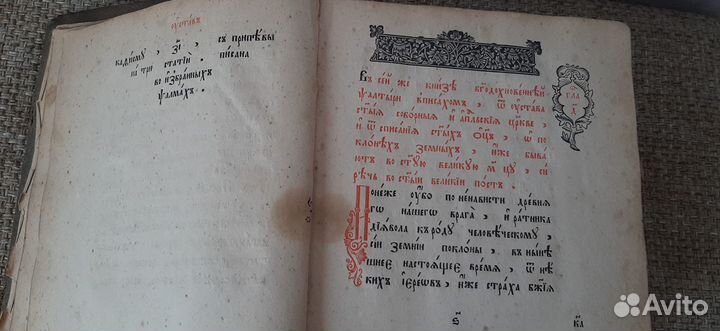 оуставъ
кафисму , з҃і , съ припѣвы
на три статіи . писана
во и҆збранныхъ
ѱалмахъ .
Въ сей же книзѣ бг҃одохновеннѣй
ѱалтыри вписахомъ , ѿ оустава
ст҃ыѧ соборныѧ и҆ а҆пл҃ьскіѧ цр҃кве ,
и҆ ѿ списаніѧ ст҃ыхъ ѻц҃ъ , ѡ по
клонѣхъ земныхъ , и҆же быва
ютъ во ст҃ую великую м҃цу , си
рѣчь во ст҃ыи великіи постъ .
глава
а҃
Понеже оубо по ненависти древнѧ
гѡ нашегѡ врага , и҆ ратника
діѧвола къ роду человѣческому ,
сіи земніи поклоны , въ нынѣ
шнее настоѧщее времѧ , ѿ нѣ
кихъ і҆ереѡвъ , и҆же страха бж҃іѧ
к҃а
Avito